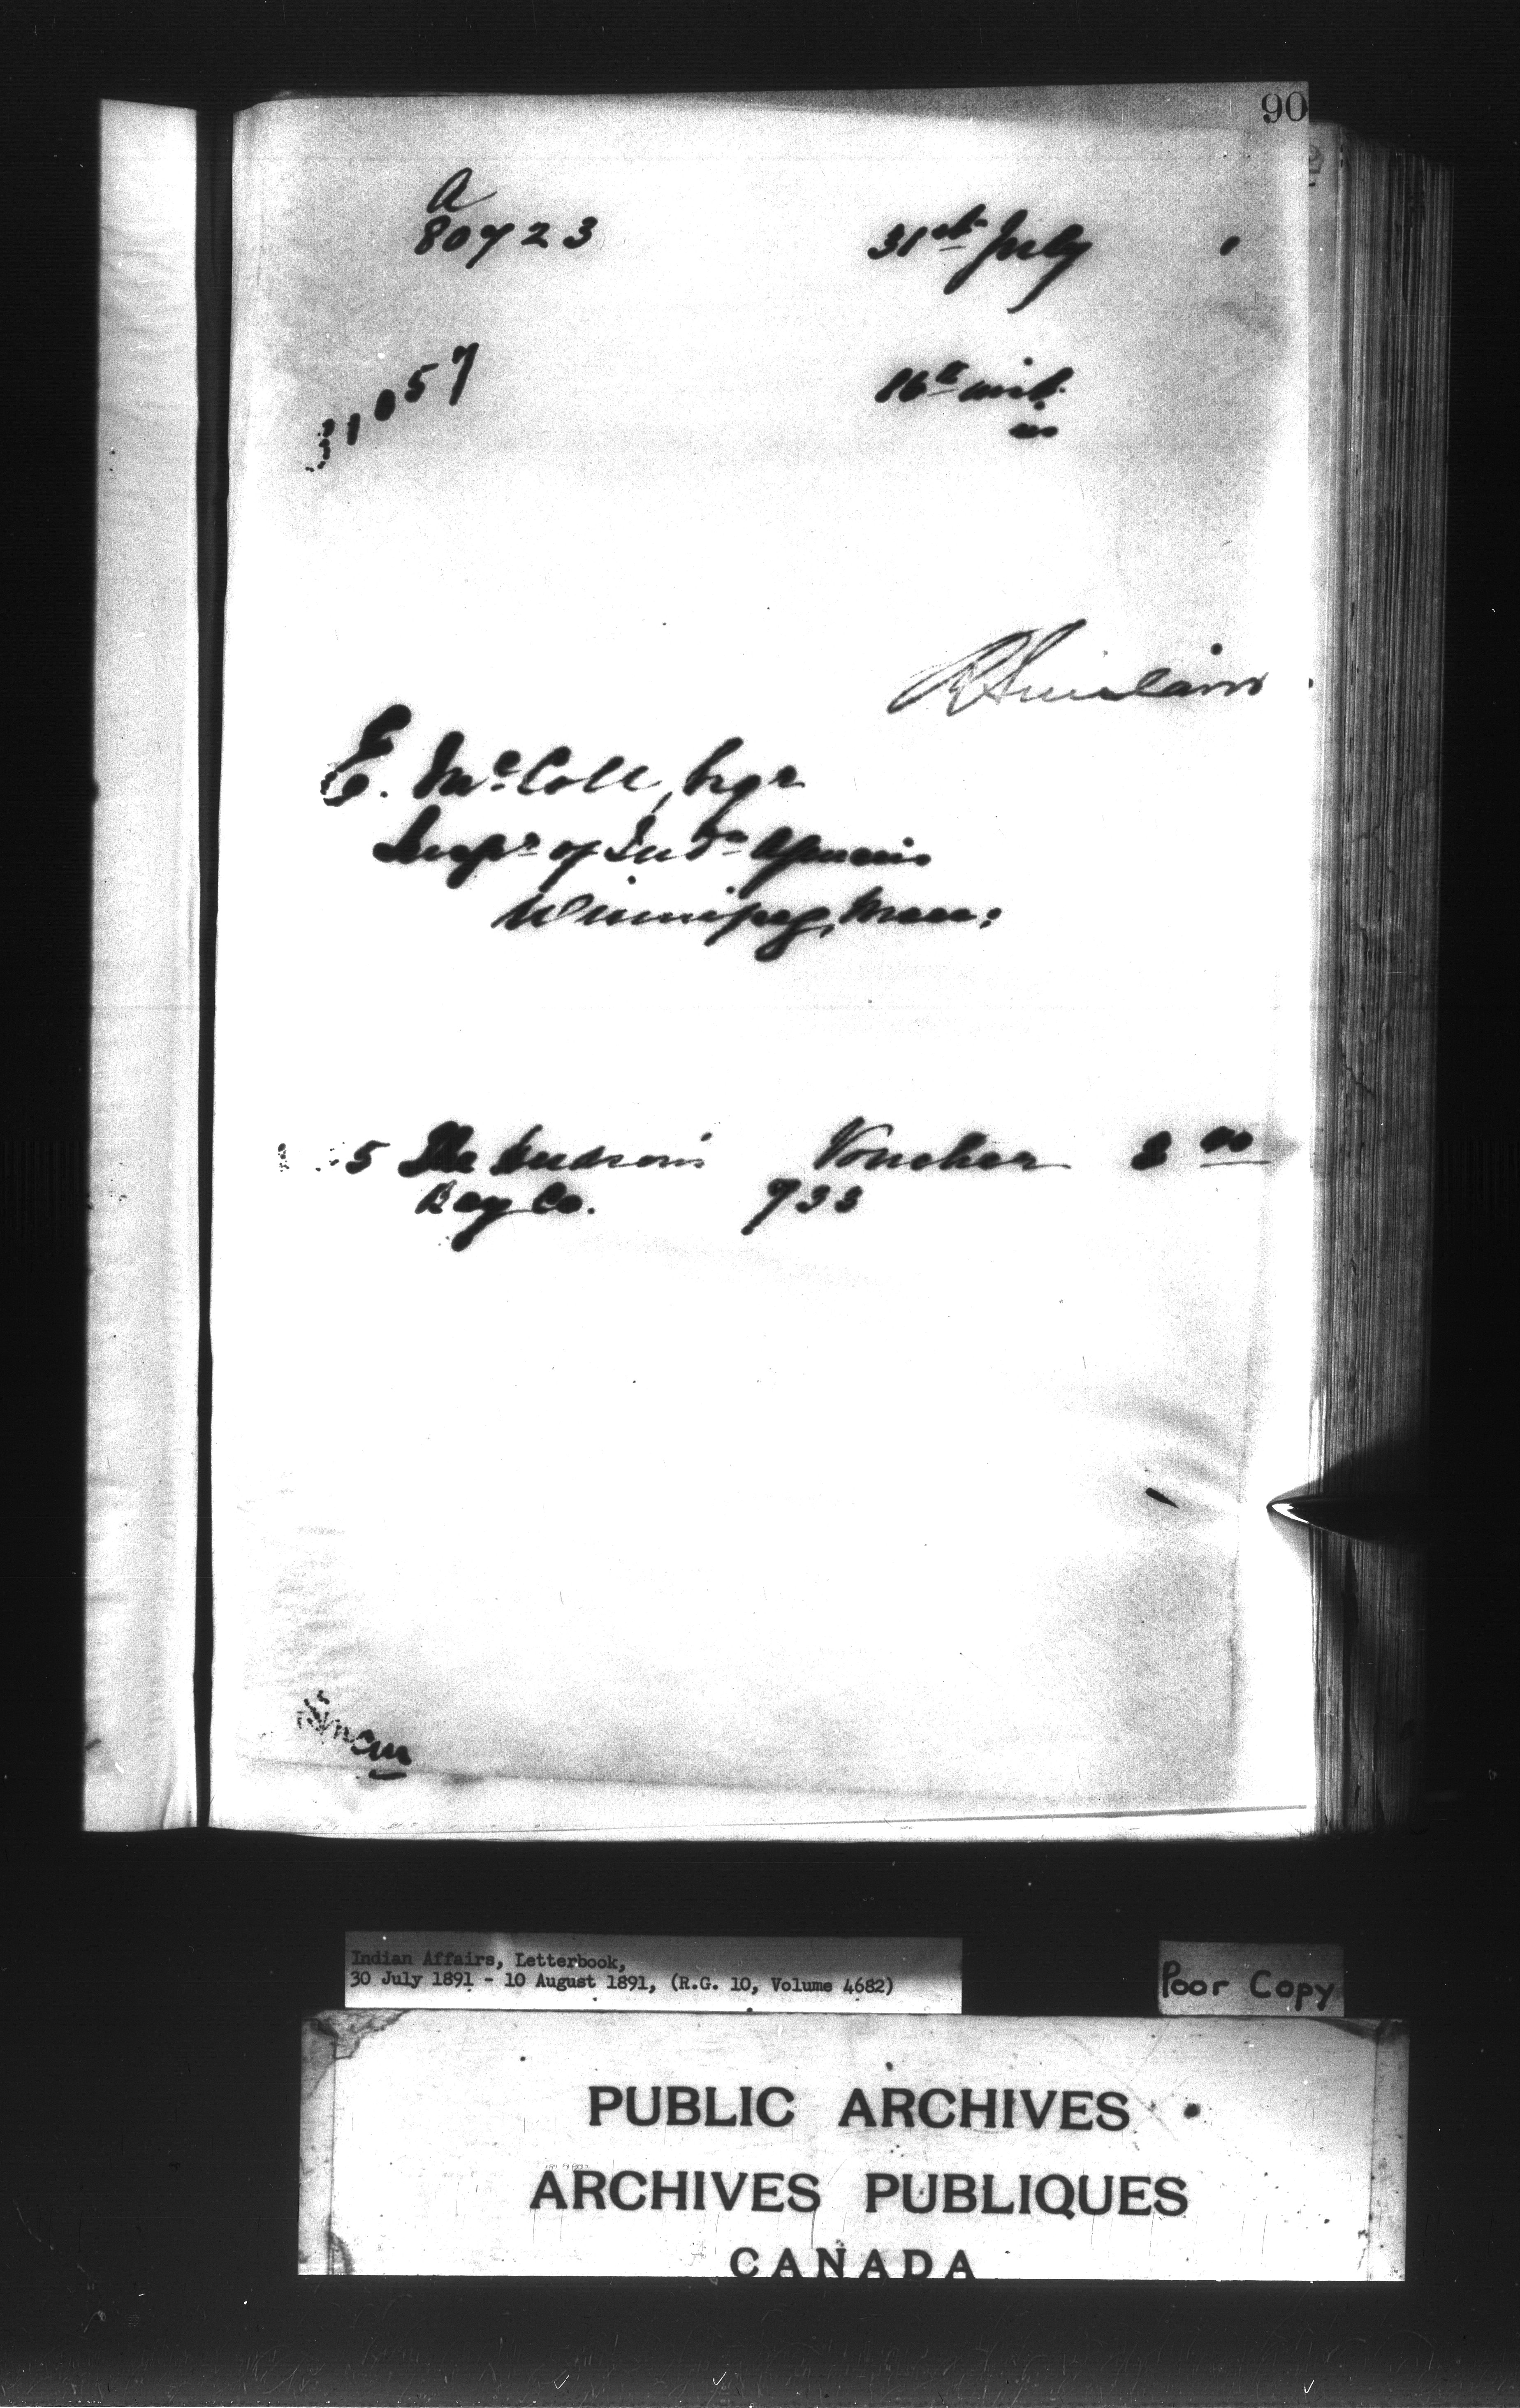 90
A
80723 31st July 1
31057 16th inst.
RSinclair.
E. McColl, Esqr
Inspr of Indn Agencies
Winnipeg, Man:
5 The Hudson's Voucher 2 00
Bay Co. 733
Indian Affairs, Letterbook,
30 July 1891 - 10 August 1891, (R.G. 10, Volume 4682)
Poor Copy
PUBLIC ARCHIVES
ARCHIVES PUBLIQUES
CANADA